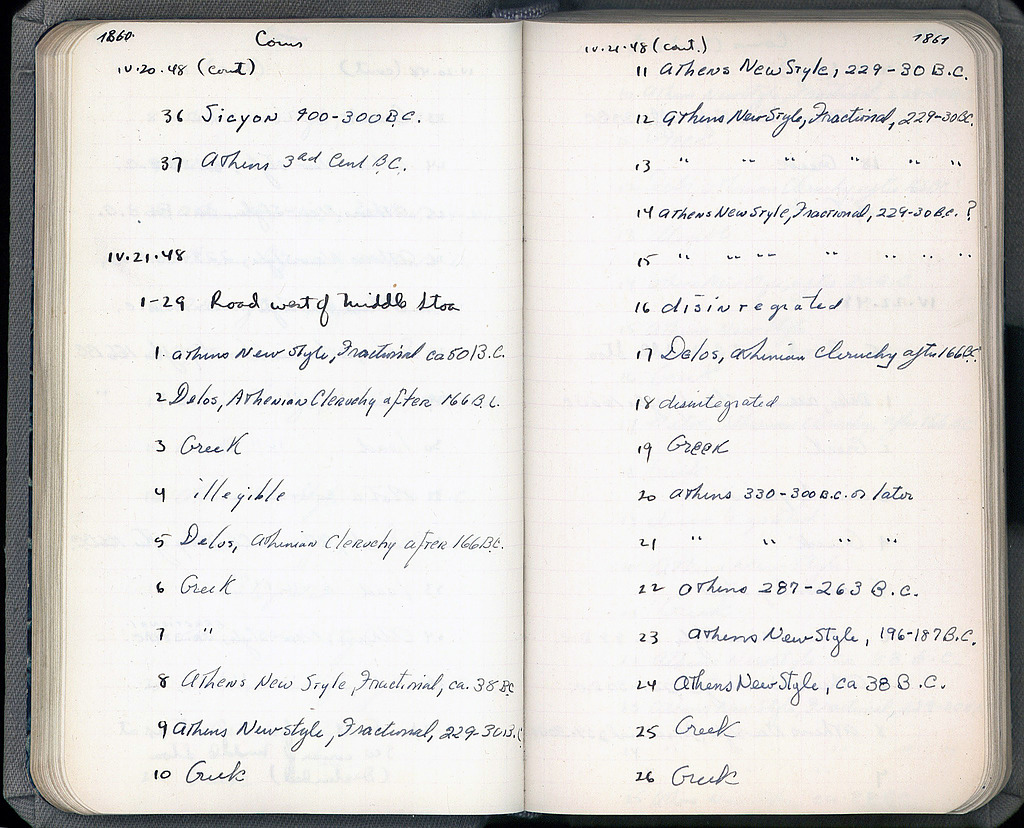 1860
Coins
IV.20.48 (cont)
36 Sicyon 400-300 B.C.
37 Athens 3rd Cent B.C.
IV.21.48
1-29 Road west of Middle Stoa
1. Athens New Style, Fractional ca 50 B.C.
2 Delos, Athenian Cleruchy after 166 B.C.
3 Greek
4 illegible
5 Delos, Athenian Cleruchy after 166 B.C.
6 Greek
7 "
8 Athens New Style, Fractional, ca. 38 BC
9 Athens New Style, Fractional, 229-30 B.C
10 Greek
1861
IV.21.48 (cont.)
11 Athens New Style, 229-30 B.C.
12 Athens New Style, Fractional, 229-30 BC.
13 " " " " " "
14 Athens New Style, Fractional, 229-30 B.C. ?
15 " " " " " " "
16 disintegrated
17 Delos, Athenian Cleruchy after 166 B.C.
18 disintegrated
19 Greek
20 Athens 330-300 B.C. or later
21 " " " "
22 Athens 287-263 B.C.
23 Athens New Style, 196-187 B.C.
24 Athens New Style, ca 38 B.C.
25 Greek
26 Greek